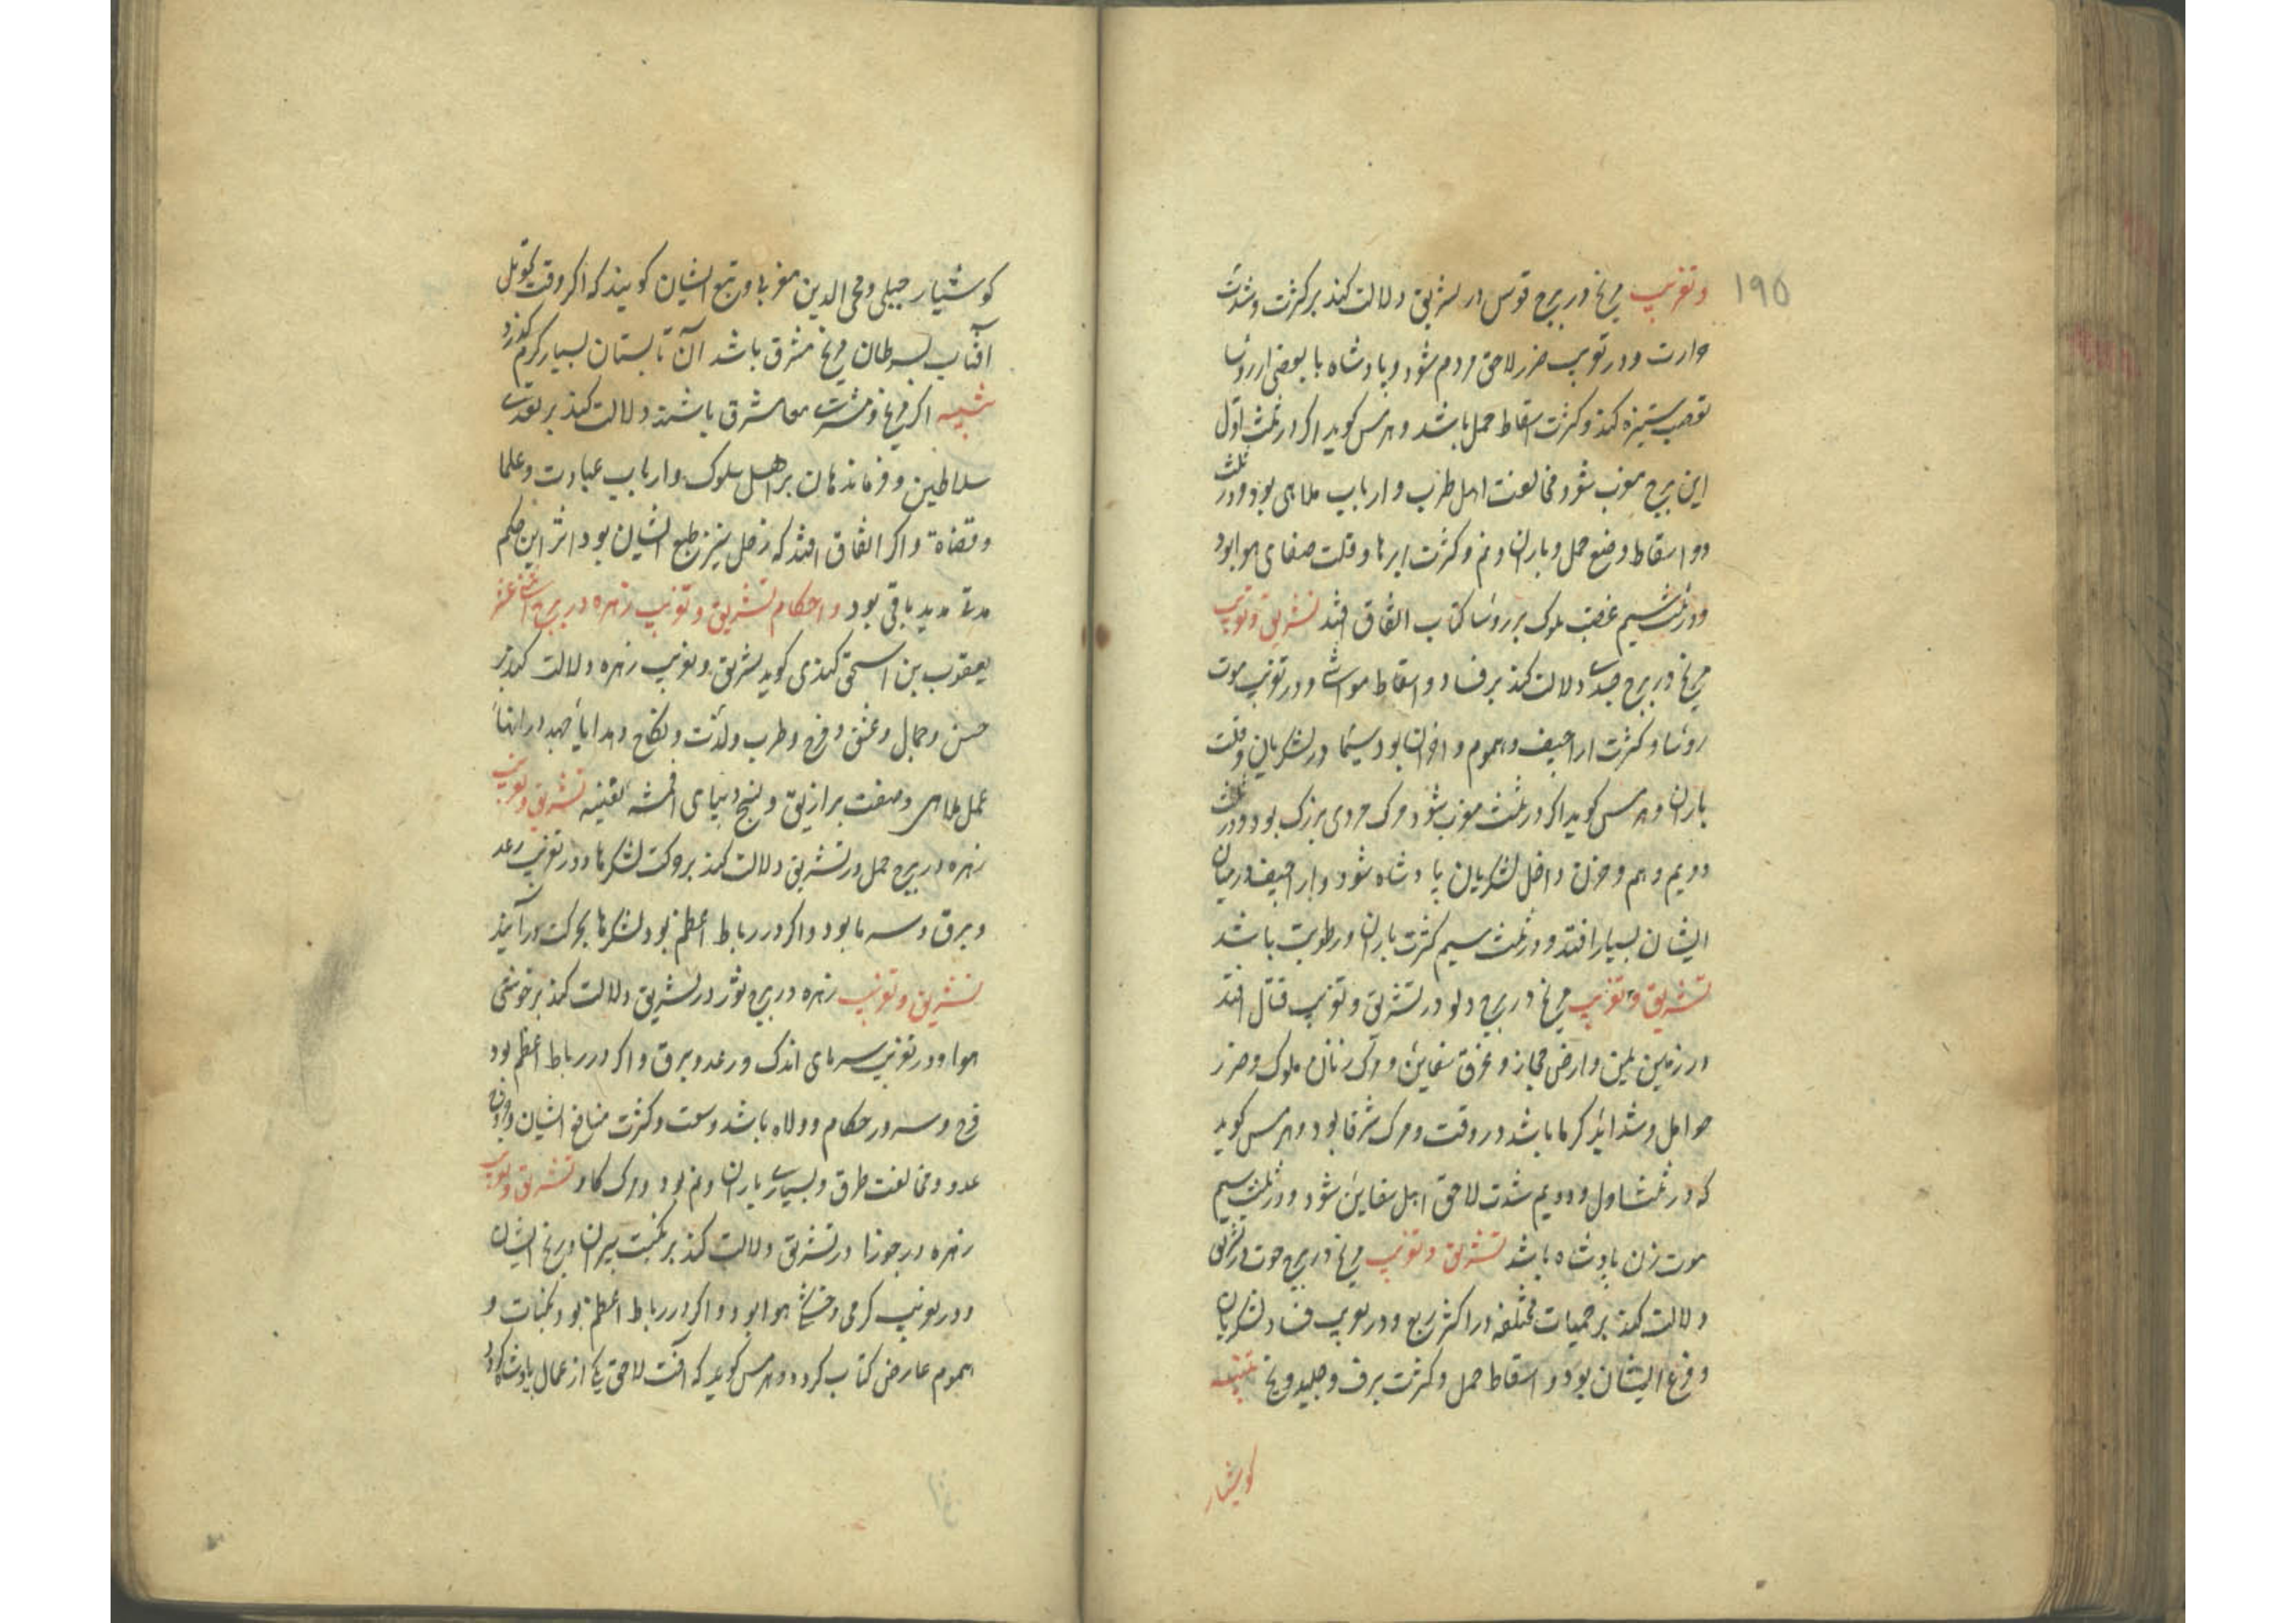 ۱۹۵
وتغریب مریخ در برج قوس در تشریق دلالت کند بر کثرت و شدت
حرارت و در تغریب ضرر لاحق مردم شود و پادشاه با بعضی از رؤسا
تعصب ستیزه کند و کثرت اسقاط حمل باشد و هرمس کوید اکر در ثلث اوّل
این برج مغرب شود مخالفت اهل طرب و ارباب ملاهی بود و در ثلث
دو اسقاط وضع حمل و باران و نم و کثرت ابرها و قلت صفای هوا بود
و در ثلث سیم غضب ملوک بر رؤسا کتاب اتفاق افتد تشریق و تغریب
مریخ در برج جدی دلالت کند بر فساد و اسقاط مواشی و در تغریب موت
رؤسا و کثرت اراجیف و هموم و احزان بود سیّما در لشکریان و قلت
باران و هرمس کوید اکر در ثلث مغرب شود مرک مردی بزرک بود و در ثلث
دویم و هم و حزن داخل لشکریان پادشاه شود و اراجیف در میان
ایشان بسیار افتد و در ثلث سیم کثرت باران و رطوبت باشد
تشریق و تغریب مریخ در برج دلو در تشریق و تغریب قتال افتد
در زمین یمن و ارض حجاز و غرق سفاین و مرک زنان ملوک و ضرر
حوامل و شداید کرما باشد در وقت و مرک شرفا بود و هرمس کوید
که در ثلث اول و دویم شدت لاحق اهل سفاین شود و در ثلث سیم
موت زن پادشاه باشد تشریق و تغریب مریخ در برج حوت در تشریق
دلالت کند بر حمیات مختلفه در اکثر ربع و در تغریب فساد لشکریان
و فزع ایشان بود و اسقاط حمل و کثرت برف و جلید و یخ تنبیه
کوشیار
کوشیار جیلی و محی الدین مغربی و تبع ایشان کویند که اکر وقت تحویل
آفتاب بسرطان مریخ مشرق باشد آن تابستان بسیار کرم کذرد
تنبیه اکر مریخ و مشتری معا مشرق باشند دلالت کند بر تعدی
سلاطین و فرماندهان بر اهل سلوک و ارباب عبادت و علما
و قضاة و اکر اتفاق افتد که زحل نیز طبع ایشان بود اثر این حکم
مدتی مدید باقی بود واحکام تشریق و تغریب زهره در برج اثنی عشر
یعقوب بن اسحق کندی کوید تشریق و تغریب زهره دلالت کند بر
حسن و جمال و عشق و فرح و طرب و لذّت و نکاح و هدایا
عمل ملاهی و صفت برازیق و نسج دیبای اقمشه نفیسه تشریق و تغریب
زهره در برج حمل در تشریق دلالت کند بر حرکت لشکرها و در تغریب رعد
و برق و سرما بود و اکر در رباط اعظم بود لشکرها بحرکت درآیند
تشریق و تغریب زهره در برج ثور در تشریق دلالت کند بر خوشی
هوا و در تغریب سرمای اندک و رعد و برق و اکر در رباط اعظم بود
فرح و سرور حکام و ولاه باشد وسعت و کثرت منافع ایشان
عدو و مخالفت طرق و بسیاری باران و نم بود و مرک کاو تشریق و تغریب
زهره در جوزا در تشریق دلالت کند بر نکبت پیران و رنج ایشان
و در تغریب کرمی و خشکی هوا بود و اکر در رباط اعظم بود نکبات و
هموم عارض کتاب کردد و هرمس کوید که آفت لاحق یکی از عمال پادشاه کردد